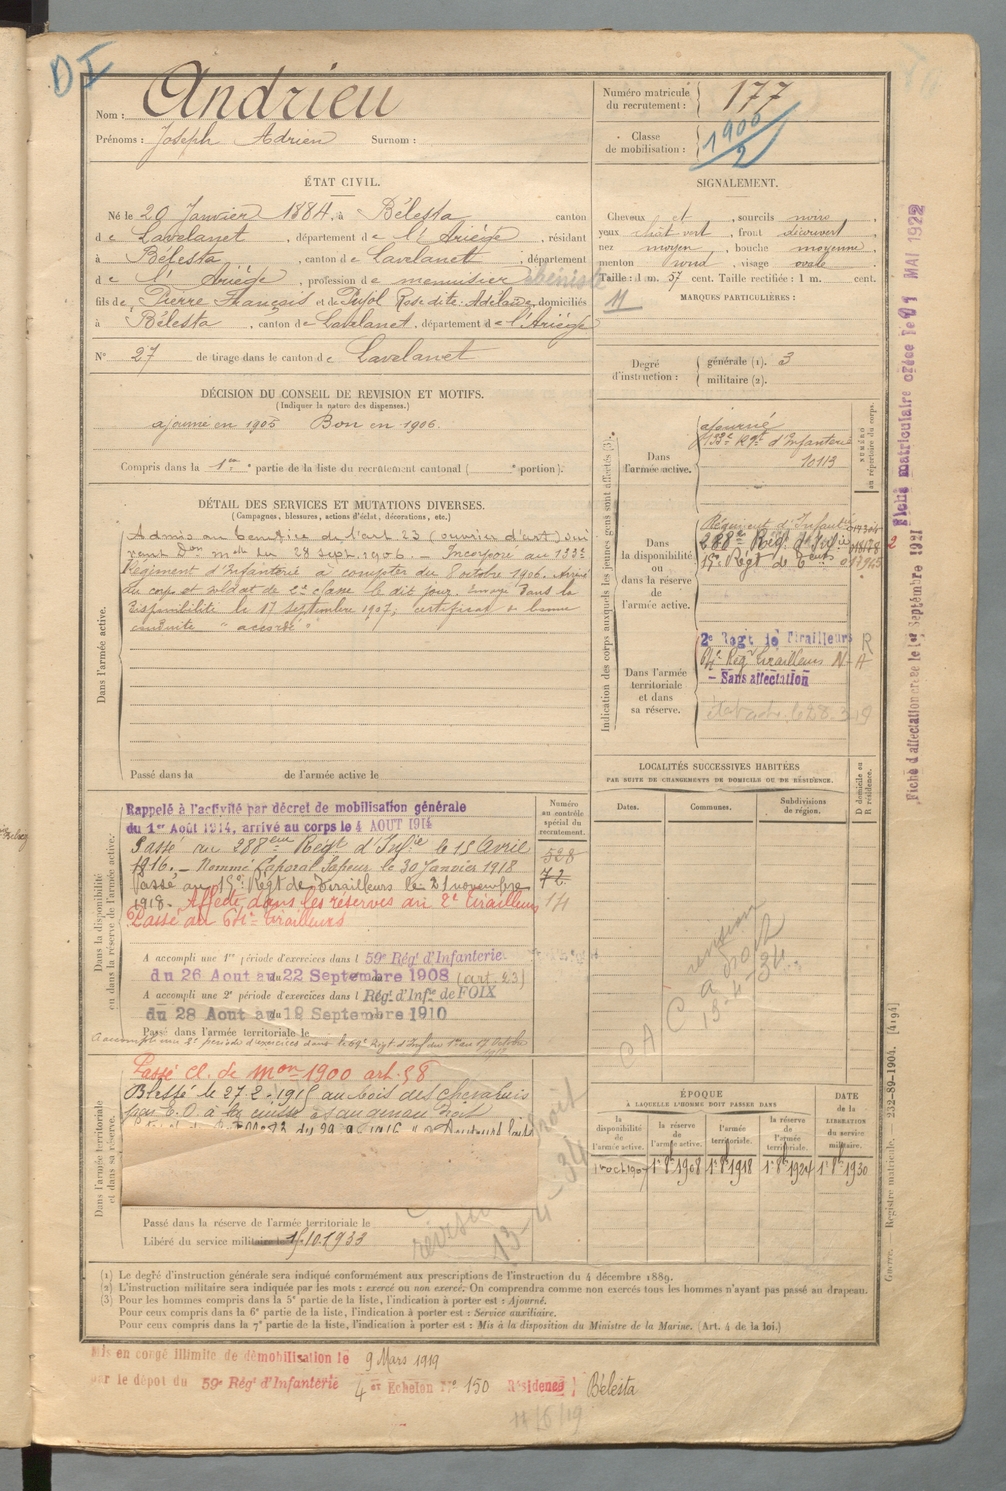 D I
Nom : Andrieu
Prénoms : Joseph Adrien Surnom :
Numéro matricule du recrutement : 177
Classe de mobilisation : 1900/2
ÉTAT CIVIL.
Né le 20 Janvier 1884, à Bélesta canton
de Lavelanet, département de l'Ariège, résidant
à Bélesta, canton de Lavelanet, département
de l'Ariège, profession de menuisier ébéniste
fils de Pierre François et de Pujol Rose dite Adélaïde, domiciliés
à Bélesta, canton de Lavelanet, département de l'Ariège
N° 27 de tirage dans le canton de Lavelanet
SIGNALEMENT.
Cheveux et, sourcils noirs,
yeux chât vert, front découvert
nez moyen, bouche moyenne,
menton rond, visage ovale
Taille : 1 m. 57 cent. Taille rectifiée : 1 m. cent.
MARQUES PARTICULIÈRES :
Degré d'instruction : générale (1). 3
militaire (2).
DÉCISION DU CONSEIL DE REVISION ET MOTIFS.
(Indiquer la nature des dispenses.)
ajourné en 1905 Bon en 1906.
Compris dans la 1re partie de la liste du recrutement cantonal ( portion).
DÉTAIL DES SERVICES ET MUTATIONS DIVERSES.
(Campagnes, blessures, actions d'éclat, décorations, etc.)
Dans l'armée active.
Admis au bénéfice de l'art. 23 (ouvrier d'art) sui
vant Don mlle du 28 sept. 1906. — Incorporé au 133e
Régiment d'Infanterie à compter du 8 octobre 1906. Arrivé
au corps et soldat de 2e classe le dit jour. Envoyé dans la
disponibilité le 17 septembre 1907; certificat de bonne
conduite "accordé"
Passé dans la de l'armée active le
Indication des corps auxquels les jeunes gens sont affectés (3).
NUMÉRO au répertoire du corps.
Dans l'armée active.
ajourné
133e Rgt d'Infanterie
10113
Dans la disponibilité ou dans la réserve de l'armée active.
Régiment d'Infanterie
288e Régt d'Infie
15e Régt de
Dans l'armée territoriale et dans sa réserve.
2e Régt de Tirailleurs R
64e Rég Tirailleurs N-A
- Sans affectation
Fiche matriculaire créée le 01 MAI 1922
Fiche d'affectation créée le 1er Septembre 1921
LOCALITÉS SUCCESSIVES HABITÉES
PAR SUITE DE CHANGEMENTS DE DOMICILE OU DE RÉSIDENCE.
Dates. Communes. Subdivisions de région. D domicile ou R résidence.
Dans la disponibilité ou dans la réserve de l'armée active.
Numéro au contrôle spécial du recrutement.
Rappelé à l'activité par décret de mobilisation générale
du 1er Août 1914, arrivé au corps le 4 AOUT 1914
Passé au 288ème Régt d'Infie le 15 Avril
1916. — Nommé Caporal Sapeur le 30 Janvier 1918
Passé au 15e Régt de Tirailleurs le 21 novembre
1918. Affecté dans les réserves au 2e Tirailleurs
Passé au 64e Tirailleurs
528
72
14
A accompli une 1re période d'exercices dans l 59e Rég! d'Infanterie.
du 26 Aout au 22 Septembre 1908 (art. 23)
A accompli une 2e période d'exercices dans l Rég! d'Infie de FOIX
du 28 Aout au 19 Septembre 1910
Passé dans l'armée territoriale le
A accompli une 2e période d'exercices dans le 59e Régt d'Inf du 1er au 17 Octobre
C A revision
à droit
13-4-34
Dans l'armée territoriale et dans sa réserve.
Passé cl. de mon 1900 art. 58
Blessé le 27-2-1915 au bois des chevaliers
par E. O. à la cuisse et au genou droit
Passé dans la réserve de l'armée territoriale le
Libéré du service militaire le 15.10.1933
révision
droit
13-4-34
ÉPOQUE
À LAQUELLE L'HOMME DOIT PASSER DANS
la disponibilité de l'armée active. la réserve de l'armée active. l'armée territoriale. la réserve de l'armée territoriale. DATE de la LIBÉRATION du service militaire.
1er oct 1907 1er 8bre 1908 1er 8bre 1918 1er 8bre 1924 1er 8bre 1930
Guerre. — Registre matricule. — 232-89-1904. [4194]
(1) Le degré d'instruction générale sera indiqué conformément aux prescriptions de l'instruction du 4 décembre 1889.
(2) L'instruction militaire sera indiquée par les mots : exercé ou non exercé. On comprendra comme non exercés tous les hommes n'ayant pas passé au drapeau.
(3) Pour les hommes compris dans la 5e partie de la liste, l'indication à porter est : Ajourné.
Pour ceux compris dans la 6e partie de la liste, l'indication à porter est : Service auxiliaire.
Pour ceux compris dans la 7e partie de la liste, l'indication à porter est : Mis à la disposition du Ministre de la Marine. (Art. 4 de la loi.)
Mis en congé illimité de démobilisation le 9 Mars 1919
par le dépôt du 59e Rég! d'Infanterie 4 er Echelon N° 150 Résidence } Bélesta
11/6/19